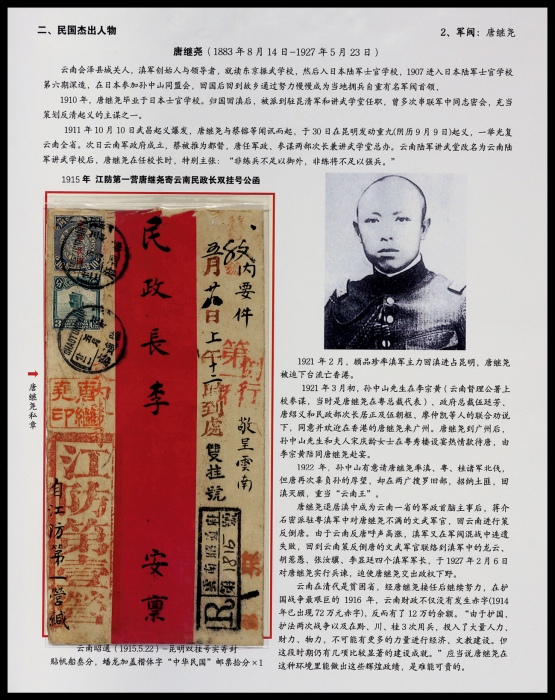 二、民国杰出人物
2、军阀：唐继尧
唐继尧（1883年8月14日-1927年5月23日）
云南会泽县城关人，滇军创始人与领导者，就读东京振武学校，然后入日本陆军士官学校，1907进入日本陆军士官学校
第六期深造，在日本参加孙中山同盟会，回国后回到故乡通过努力慢慢成为当地拥兵自重有名军阀首领。
1910年，唐继尧毕业于日本士官学校。归国回滇后，被派到驻昆清军和讲武学堂任职，曾多次串联军中同志密会，充当
策划反清起义的主谋之一。
1911年10月10日武昌起义爆发，唐继尧与蔡锷等闻讯而起，于30日在昆明发动重九(阴历9月9日)起义，一举光复
云南全省。次日云南军政府成立，蔡被推为都督，唐任军政、参谋两部次长兼讲武学堂总办。云南陆军讲武堂改名为云南陆
军讲武学校后，唐继尧在任校长时，特别主张：“非练兵不足以御外，非练将不足以强兵。”
1915年 江防第一营唐继尧寄云南民政长双挂号公函
民政长李 安禀
效内要件
敬呈云南
五月廿八日上午十二時到處
雙挂號
江防第壹營
自江防第一營緘
雲南昭通府
第1815號
R
唐继尧私章
1921年2月，顾品珍率滇军主力回滇进占昆明，唐继尧
被迫下台流亡香港。
1921年3月初，孙中山先生在李宗黄（云南督理公署上
校参谋，当时是唐继尧在粤总裁代表）、政府总裁伍廷芳、
唐绍义和民政部次长居正及伍朝枢、廖仲凯等人的联合劝说
下，同意并欢迎在香港的唐继尧来广州。唐继尧到广州后，
孙中山先生和夫人宋庆龄女士在粤秀楼设宴热情款待唐，由
李宗黄陪同唐继尧赴宴。
1922年，孙中山有意请唐继尧率滇、粤、桂诸军北伐，
但唐再次辜负孙的厚望，却在两广搜罗旧部，招纳土匪，回
滇灭顾，重当“云南王”。
唐继尧退居滇中成为云南一省的军政首脑主事后，蒋介
石密派驻粤滇军中对唐继尧不满的文武军官，回云南进行策
反倒唐。由于云南反唐呼声高涨，滇军又在军阀混战中连遭
失败，回到云南策反倒唐的文武军官联络到滇军中的龙云、
胡惹愚、张汝骥、李显廷四个滇军军长，于1927年2月6日
对唐继尧实行兵谏，迫使唐继尧交出政权下野。
云南在清代是贫困省，经唐继尧接任后继续努力，在护
国战争最艰巨的1916年，云南财政不仅没有发生赤字(1914
年已出现72万元赤字)，反而有了12万的余额。“由于护国、
护法两次战争以及在黔、川、桂3次用兵，投入了大量人力、
财力、物力，不可能有更多的力量进行经济、文教建设。但
这段时期仍有几项比较显著的建设成就。”应当说唐继尧在
这种环境里能做出这些辉煌政绩，是难能可贵的。
云南昭通（1915.5.22）-昆明双挂号实寄封
贴帆船叁分，蟠龙加盖楷体字“中华民国”邮票拾分×1